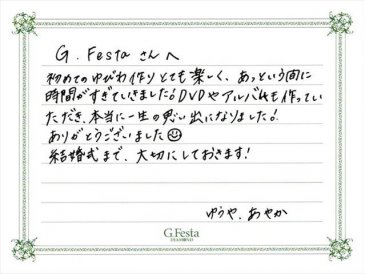 G.Festa さんへ
初めてのゆびわ作りとても楽しく、あっという間に
時間がすぎていきました!DVDやアルバムも作ってい
ただき、本当に一生の思い出になりました!
ありがとうございました☺
結婚式まで、大切にしておきます!
ゆうや、あやか
G.Festa
DIAMOND